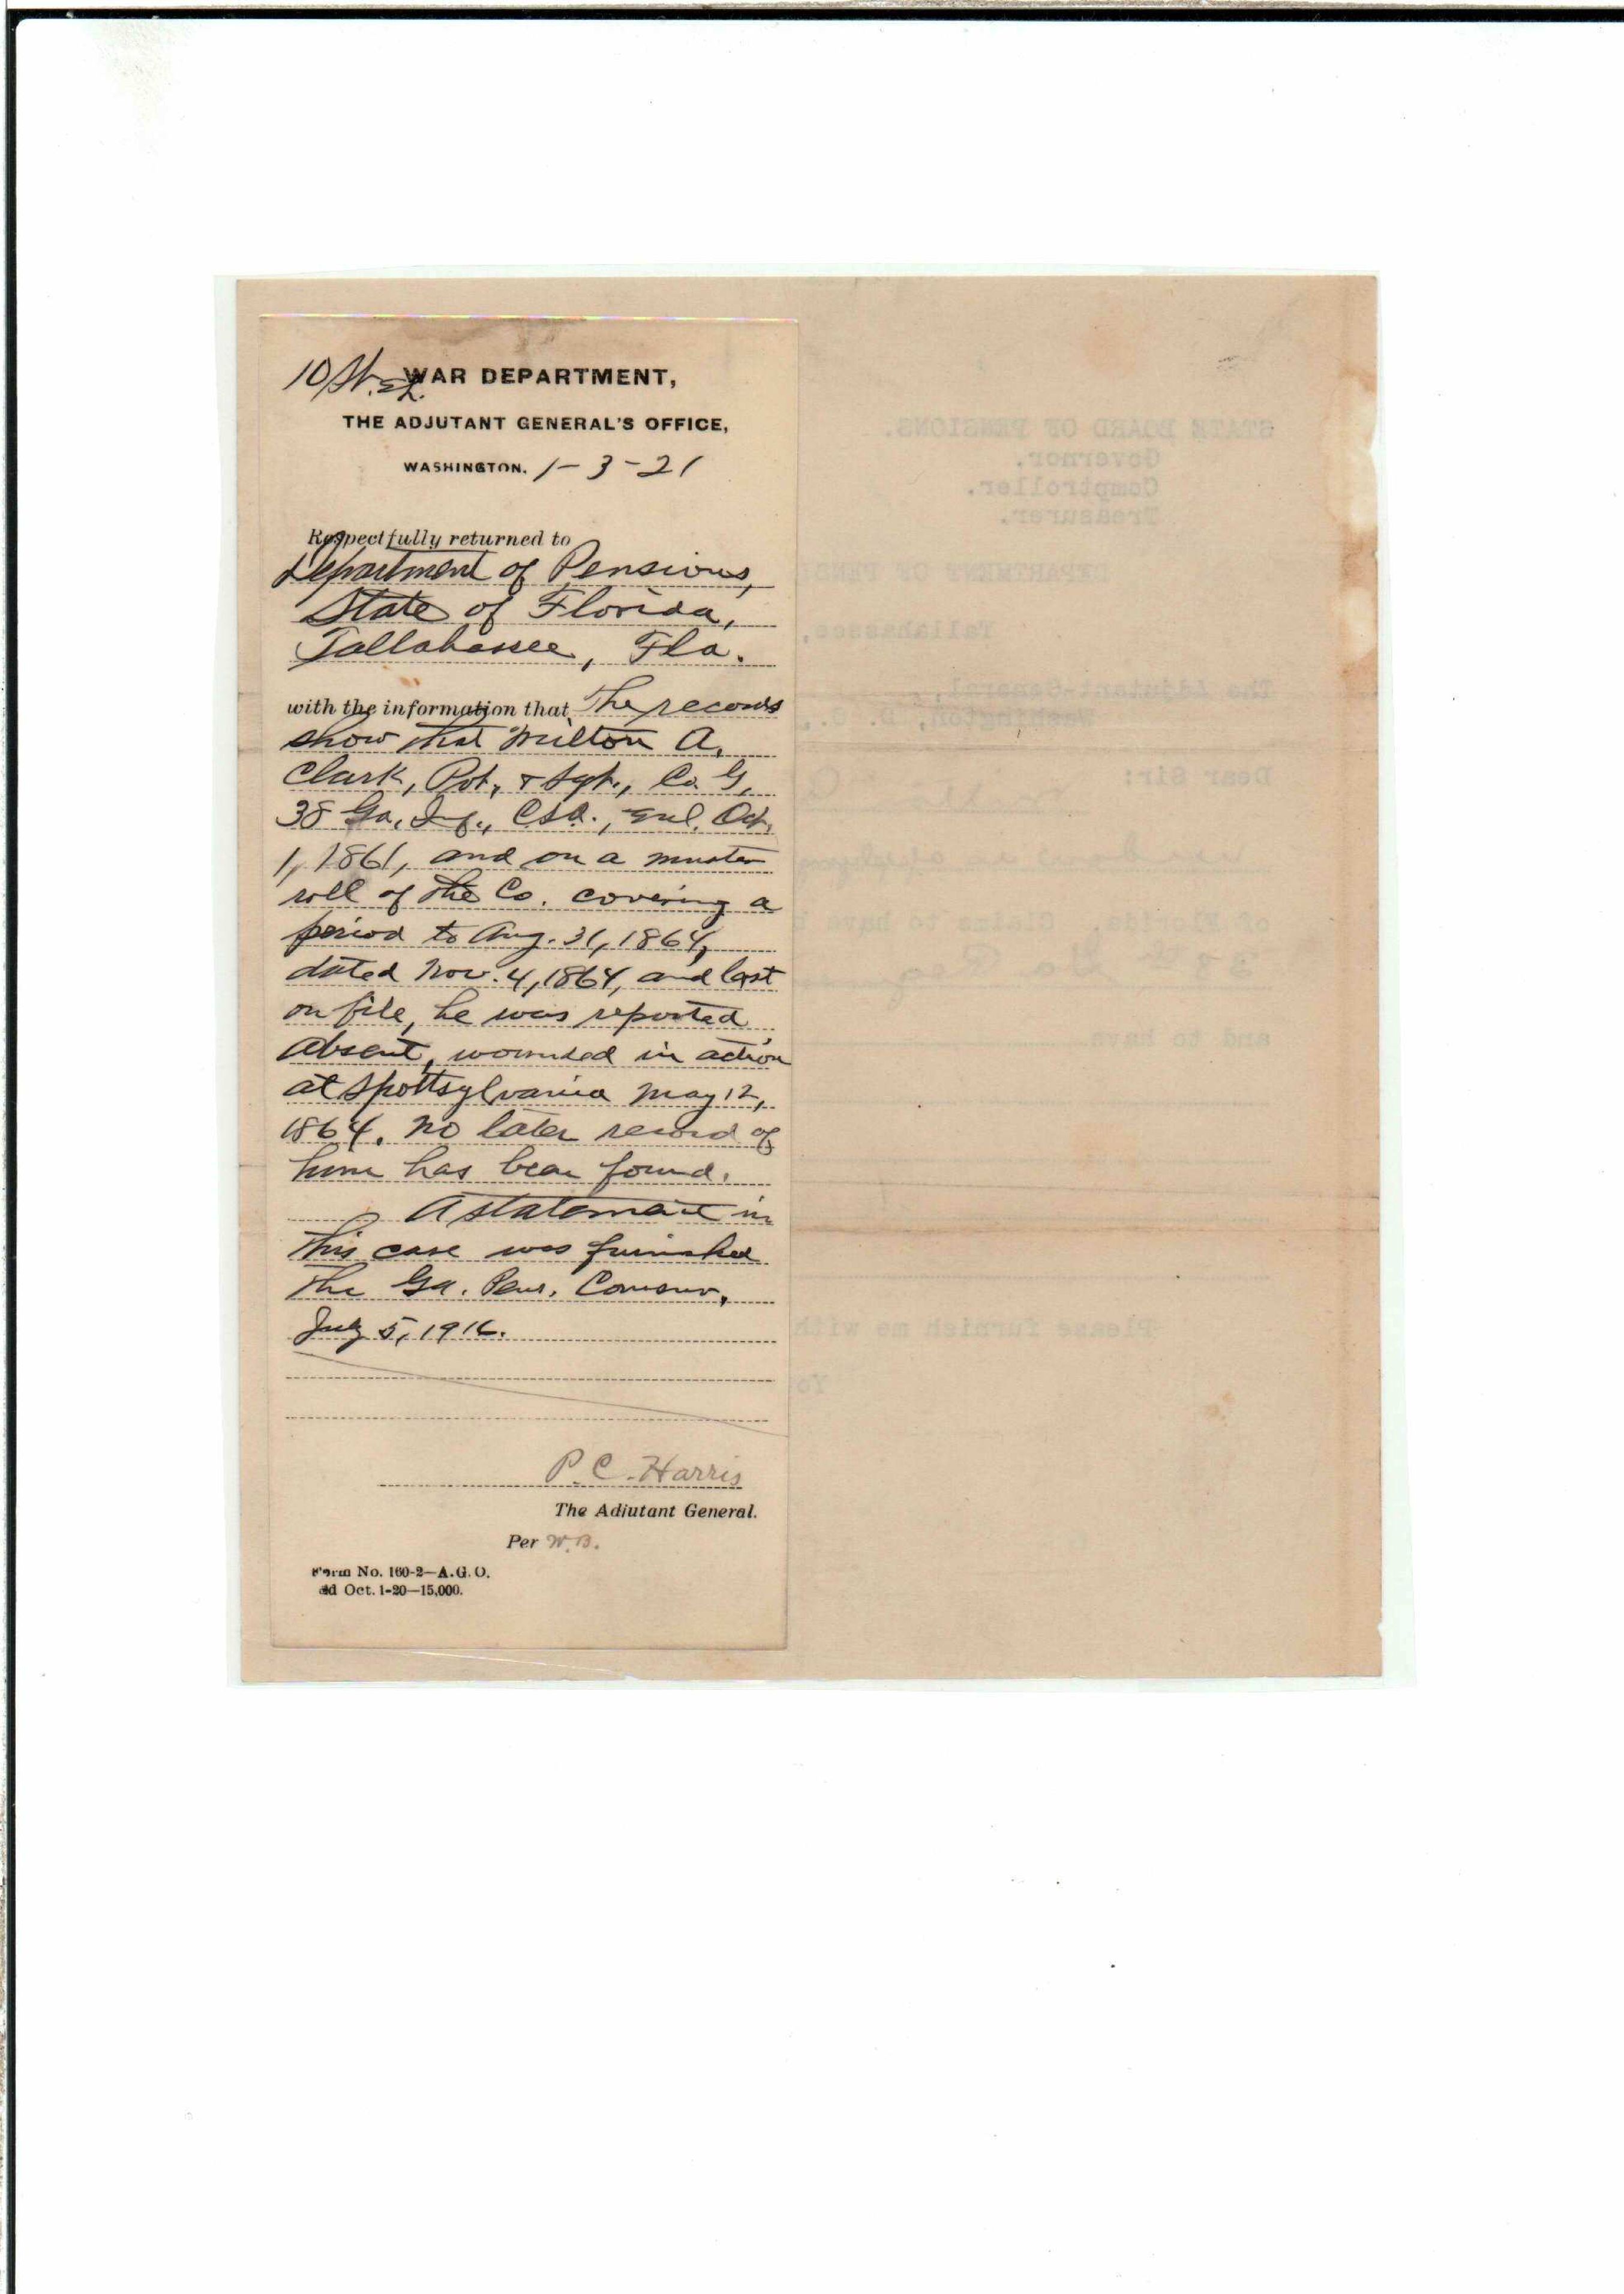 WAR DEPARTMENT,
THE ADJUTANT GENERAL'S OFFICE,
WASHINGTON. 1-3-21
Respectfully returned to
Department of Pensions,
State of Florida,
Tallahassee, Fla.
with the information that The records
show that Milton A.
Clark, Pvt. & Sgt., Co. G,
38 Ga. Inf., C.S.A., enl. Oct.
1, 1861, and on a muster
roll of the Co. covering a
period to Aug. 31, 1864,
dated Nov. 4, 1864, and last
on file, he was reported
absent, wounded in action
at Spottsylvania May 12,
1864. No later record of
him has been found.
A statement in
this case was furnished
the Ga. Pens. Comsnr.
July 5, 1916.
P. C. Harris
The Adjutant General.
Per W.B.
Form No. 160-2—A.G.O.
ed Oct. 1-20—15,000.
STATE BOARD OF PENSIONS.
Governor.
Comptroller.
Treasurer.
DEPARTMENT OF PENS
Tallahassee,
The Adjutant-General,
Washington, D. C.,
Dear Sir:
of Florida. Claims to have b
and to have
Please furnish me with
Yo